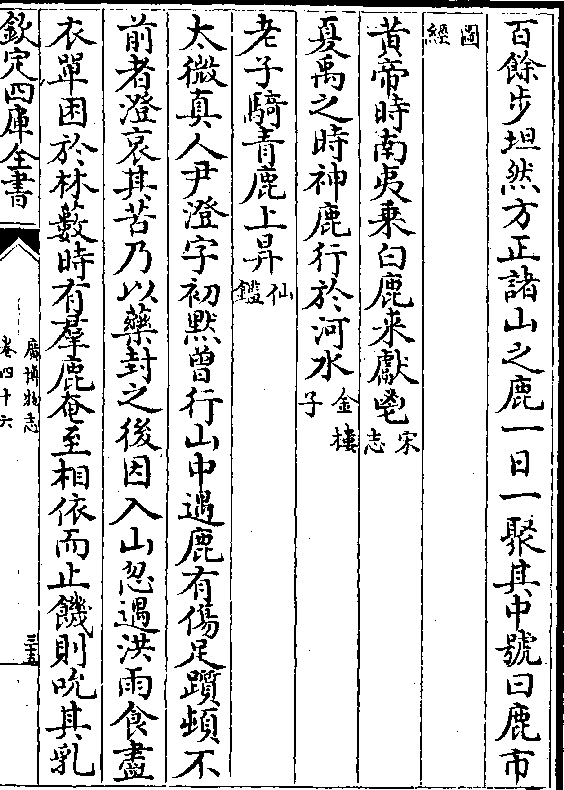 百餘步坦然方正諸山之鹿一日一聚其中號曰鹿市
圖經
黃帝時南夷乗白鹿来獻鬯宋志
夏禹之時神鹿行於河水金樓子
老子騎青鹿上昇仙鑑
太微真人尹澄字初默曽行山中遇鹿有傷足躓頓不
前者澄哀其苦乃以藥封之後因入山忽遇洪雨食盡
衣單困於林藪時有羣鹿奄至相依而止饑則吮其乳
欽定四庫全書
廣博物志
卷四十六
三五